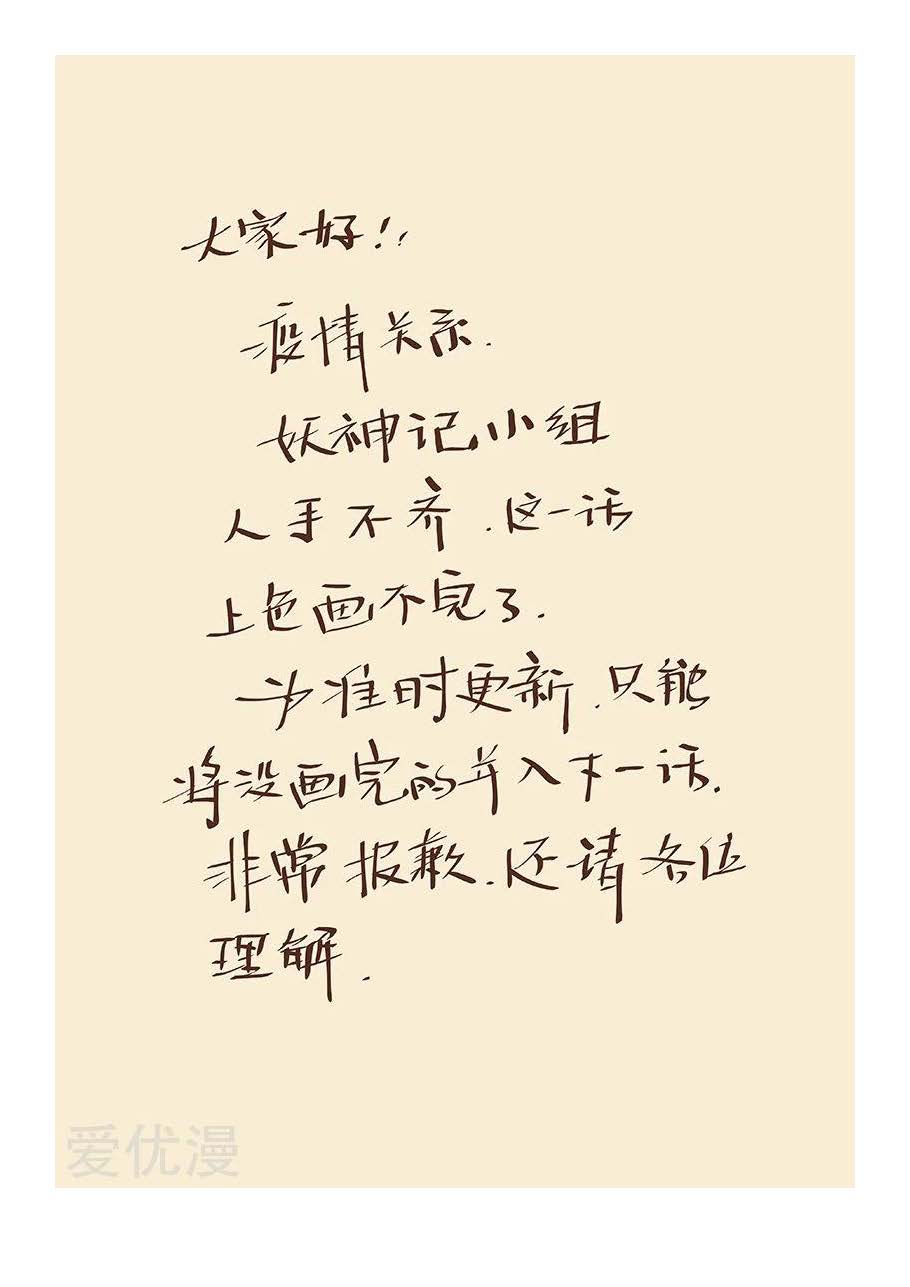 大家好!!
疫情关系.
妖神记小组
人手不齐.这一话
上色画不完了.
为准时更新.只能
将没画完的并入下一话.
非常报歉.还请各位
理解.
爱优漫